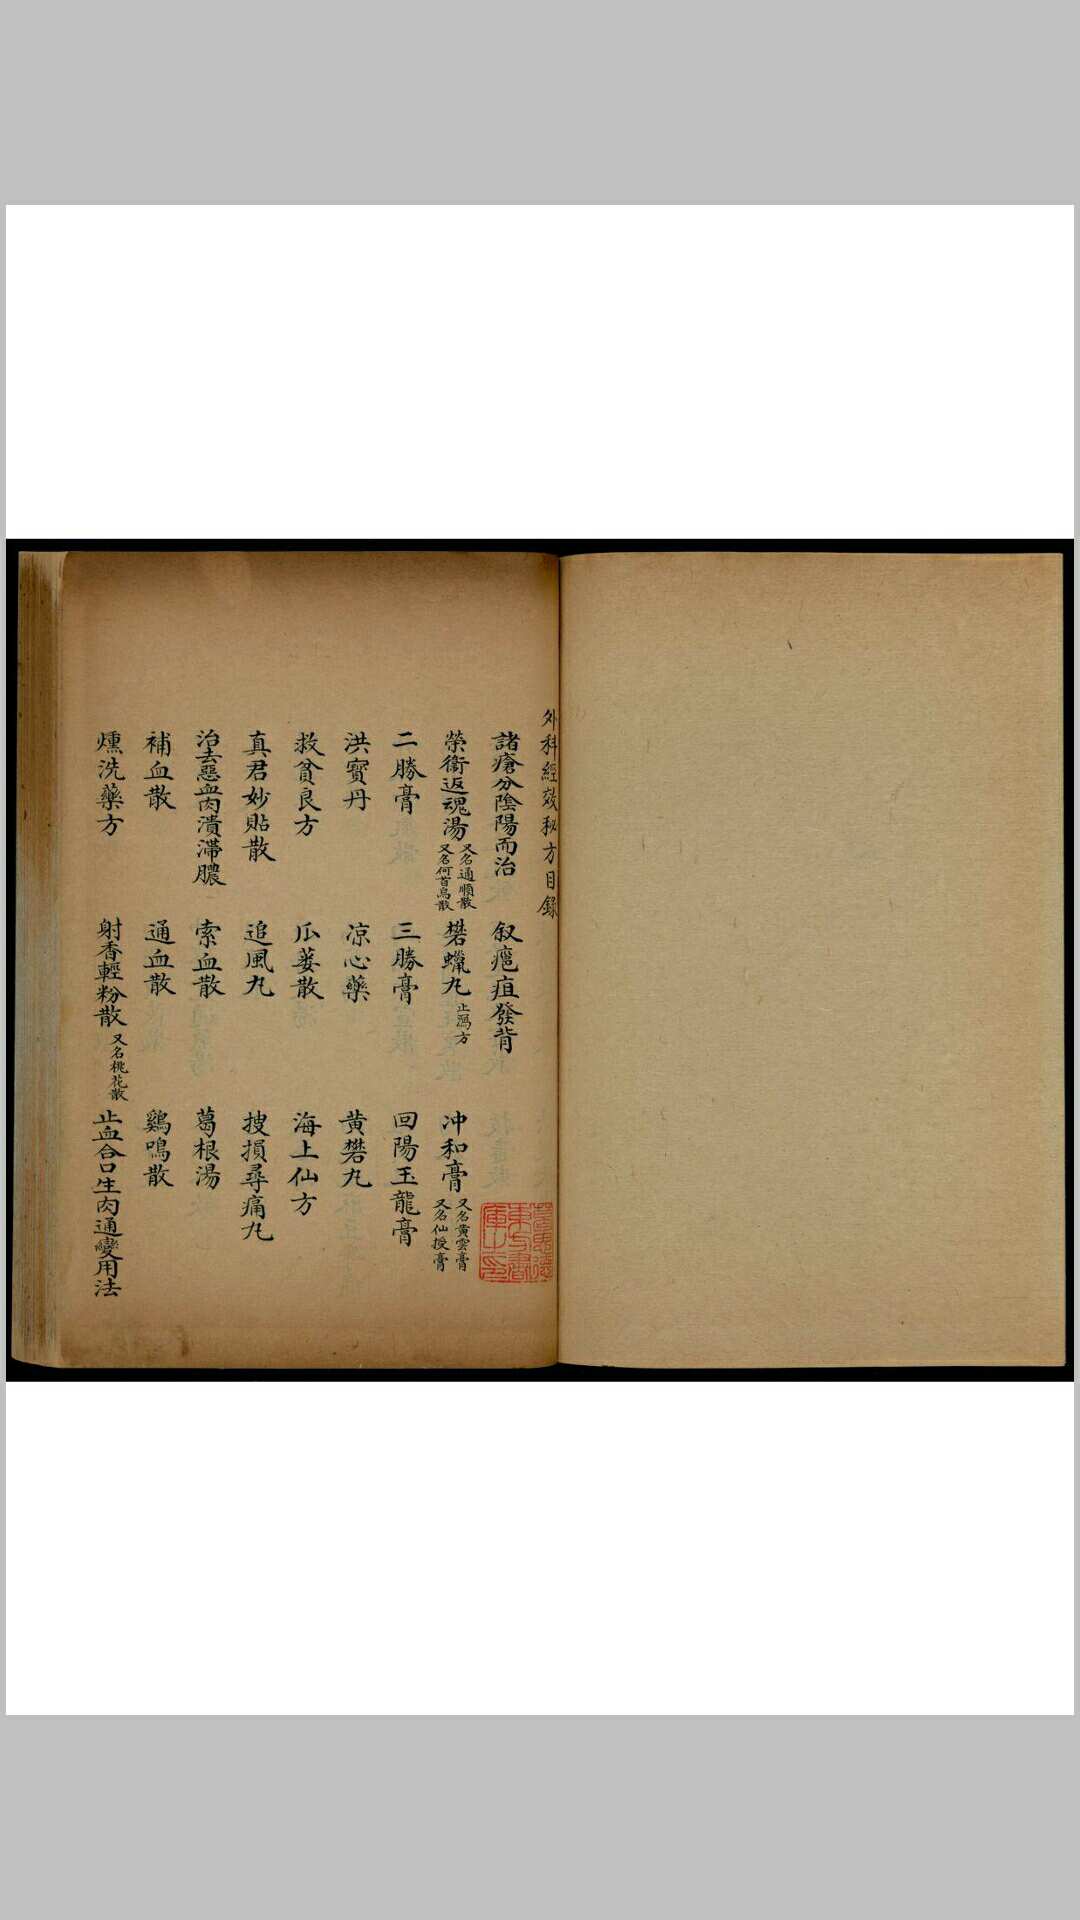 外科經效秘方目錄
諸瘡分陰陽而治 叙癰疽發背
榮衛返魂湯 又名通順散 又名何首烏散 礬蠟丸 止瀉方 冲和膏 又名黃雲膏 又名仙授膏
二勝膏 三勝膏 回陽玉龍膏
洪寶丹 凉心藥 黄礬丸
救貧良方 瓜蔞散 海上仙方
真君妙貼散 追風丸 搜損尋痛丸
治去惡血肉潰滯膿 索血散 葛根湯
補血散 通血散 鷄鳴散
燻洗藥方 射香輕粉散 又名桃花散 止血合口生肉通變用法